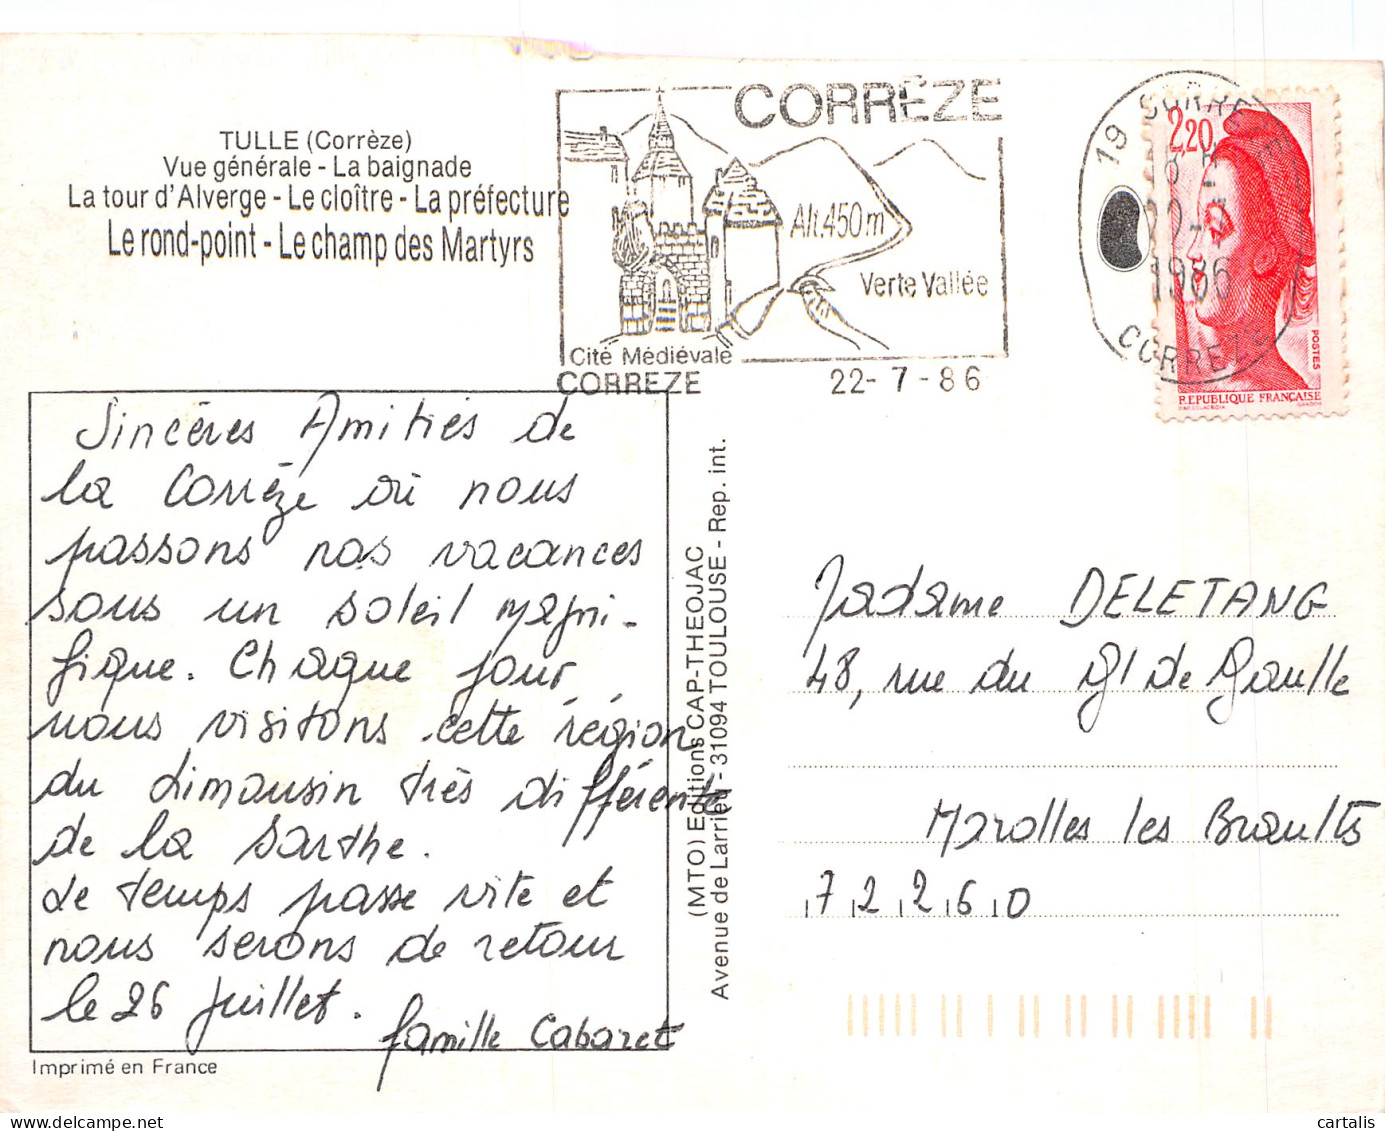 TULLE (Corrèze)
Vue générale - La baignade
La tour d'Alverge - Le cloître - La préfecture
Le rond-point - Le champ des Martyrs
CORRÈZE
Alt. 450 m
Verte Vallée
Cité Médiévale
CORREZE
22-7-86
19 CORREZE
1986
CORREZE
2,20
POSTES
REPUBLIQUE FRANÇAISE
Sincères Amitiés de
la Corrèze où nous
passons nos vacances
sous un soleil magni-
fique. Chaque jour
nous visitons cette région
du Limousin très différente
de la Sarthe.
Le temps passe vite et
nous serons de retour
le 26 Juillet.
famille Cabaret
Imprimé en France
(MTO) Editions CAP-THEOJAC
Avenue de Larrieu - 31094 TOULOUSE - Rep. int.
Madame DELETANG
48, rue du Gl de Gaulle
Marolles les Braults
72260
cartalis